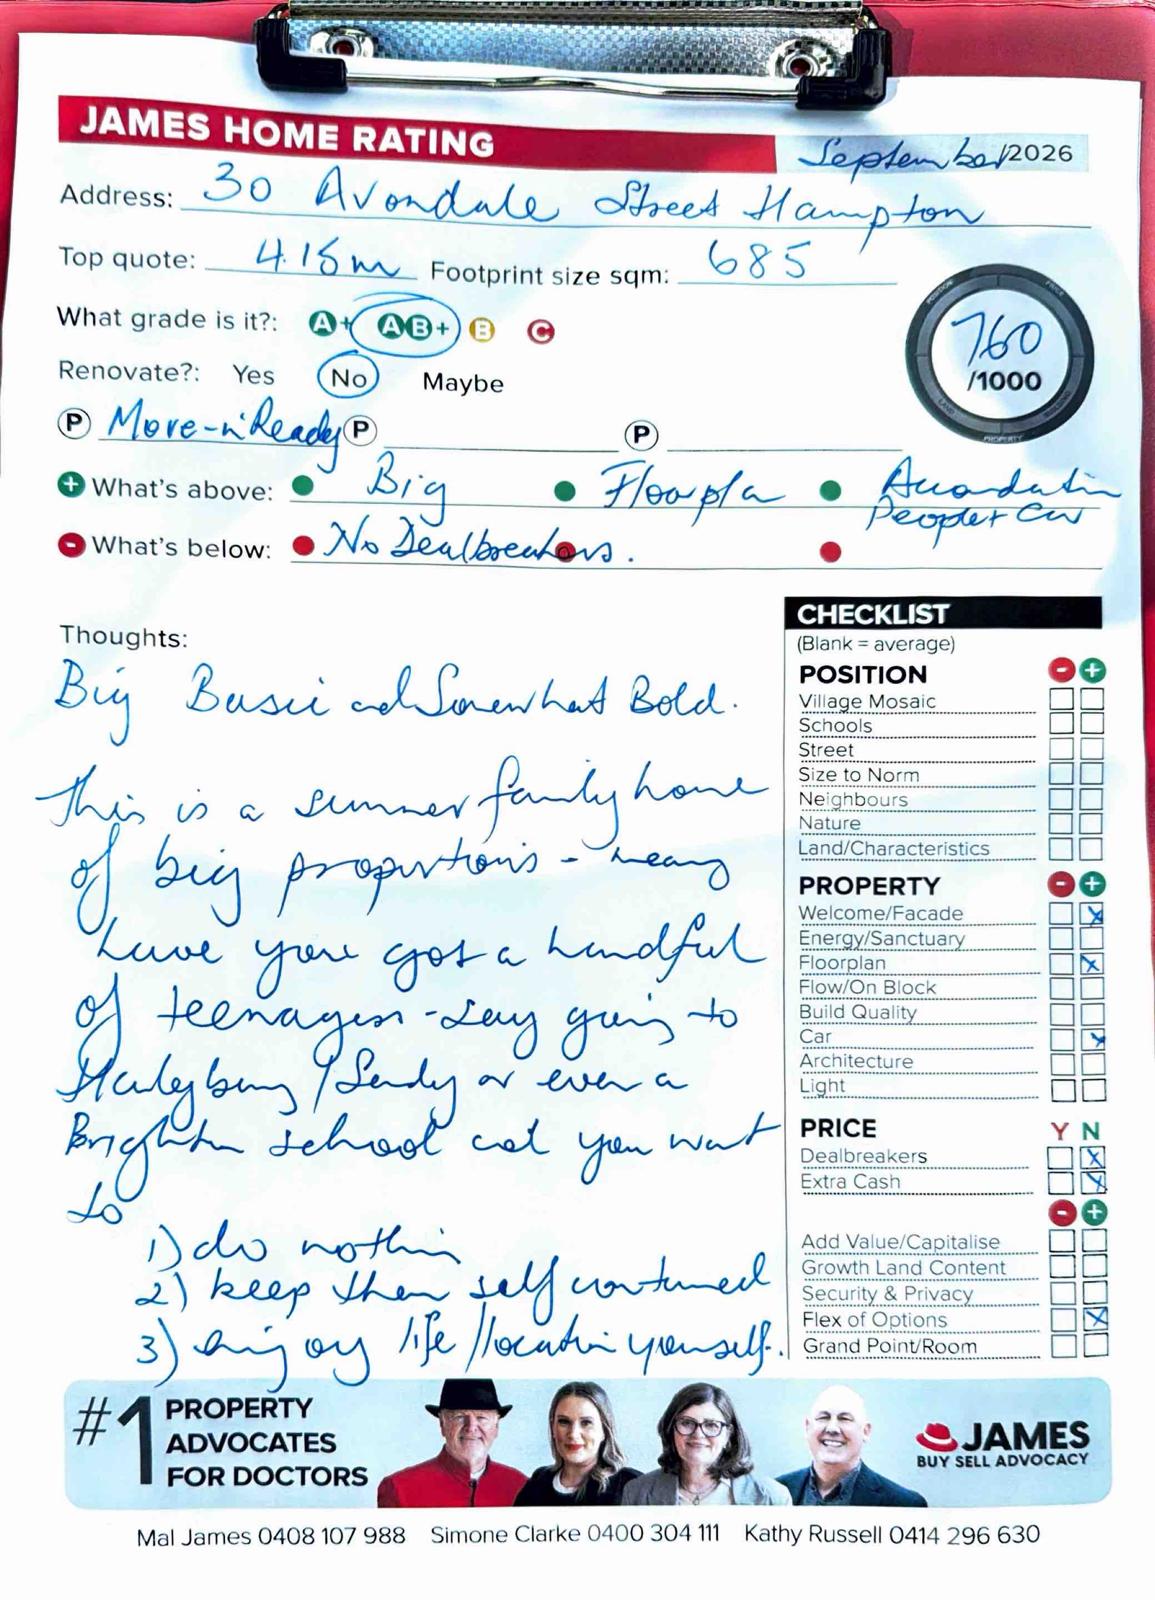 JAMES HOME RATING
September/2026
Address: 30 Avondale Street Hampton
Top quote: 4.15m Footprint size sqm: 685
What grade is it?: A+ AB+ B C
760
/1000
Renovate?: Yes No Maybe
P Move-n'Ready P P
+ What's above: Big Floorpla Accomodation
People + Car
- What's below: No Dealbreakers.
Thoughts:
Big Basic and Somewhat Bold.
This is a summer family home
of big proportions - meaning
have you got a handful
of teenagers - say going to
Haileybury / Sandy or even a
Brighton school and you want
to
1) do nothing
2) keep them self contained
3) enjoy life / location yourself.
CHECKLIST
(Blank = average)
POSITION - +
Village Mosaic
Schools
Street
Size to Norm
Neighbours
Nature
Land/Characteristics
PROPERTY - +
Welcome/Facade x
Energy/Sanctuary
Floorplan x
Flow/On Block
Build Quality
Car x
Architecture
Light
PRICE Y N
Dealbreakers x
Extra Cash x
- +
Add Value/Capitalise
Growth Land Content
Security & Privacy
Flex of Options x
Grand Point/Room
#1 PROPERTY
ADVOCATES
FOR DOCTORS
JAMES
BUY SELL ADVOCACY
Mal James 0408 107 988 Simone Clarke 0400 304 111 Kathy Russell 0414 296 630